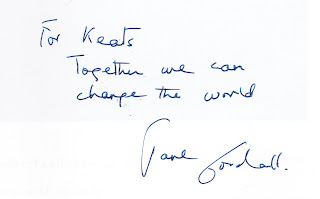 For Keats
Together we can
change the world
Jane Goodall.